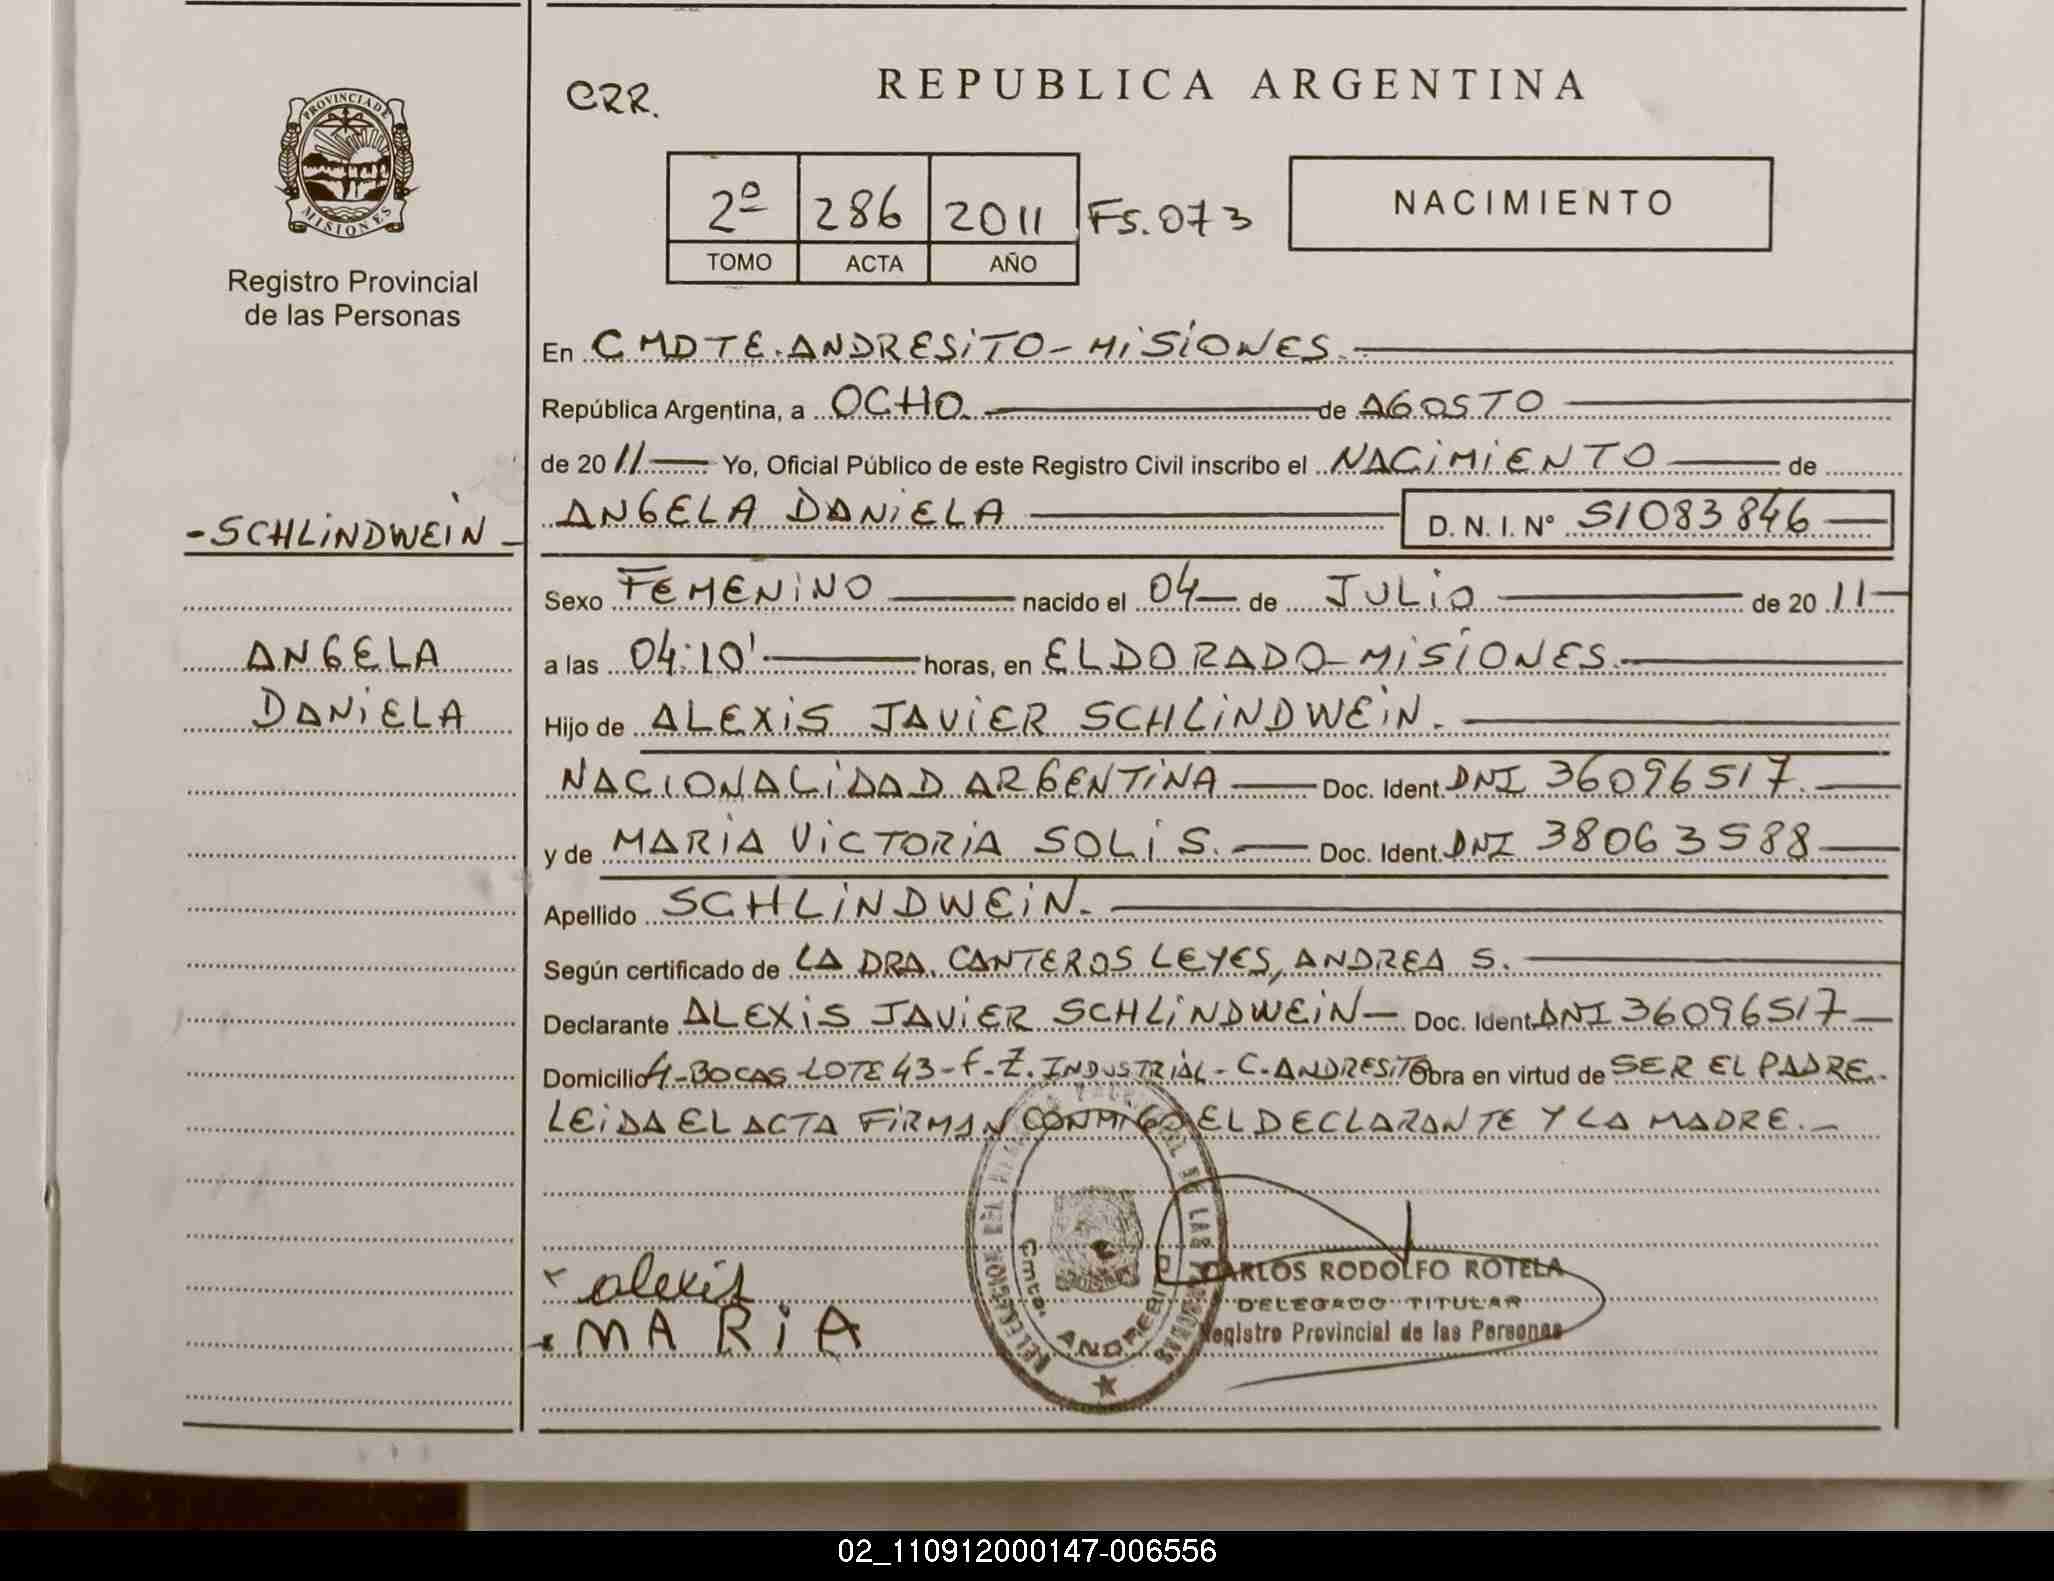 PROVINCIA DE
MISIONES
Registro Provincial
de las Personas
-SCHLiNDWEiN-
ANGELA
DANiELA
CRR.
REPUBLICA ARGENTINA
2º 286 2011 Fs. 073
TOMO ACTA AÑO
NACIMIENTO
En CMDTE. ANDRESiTO - MiSiONES.
República Argentina, a OCHO de AGOSTO
de 2011 Yo, Oficial Público de este Registro Civil inscribo el NACiMiENTO de
ANGELA DANiELA D. N. I. Nº 51083846
Sexo FEMENiNO nacido el 04 de JULiO de 2011
a las 04:10' horas, en ELDORADO - MiSiONES.
Hijo de ALEXiS JAViER SCHLiNDWEiN.
NACIONALiDAD ARGENTiNA Doc. Ident. DNI 36096517.
y de MARiA ViCTORiA SOLiS. Doc. Ident. DNI 38063588
Apellido SCHLiNDWEiN.
Según certificado de LA DRA. CANTEROS LEYES, ANDREA S.
Declarante ALEXiS JAViER SCHLiNDWEiN Doc. Ident. DNI 36096517
Domicilio 4-BOCAS-LOTE 43-F-Z. INDUSTRiAL - C. ANDRESiTO Obra en virtud de SER EL PADRE.
LEiDA EL ACTA FiRMAN CONMiGO EL DECLARANTE Y LA MADRE.-
alexis
MARiA
Cmte. ANDRESITO
CARLOS RODOLFO ROTELA
DELEGADO TITULAR
Registro Provincial de las Personas
02_110912000147-006556